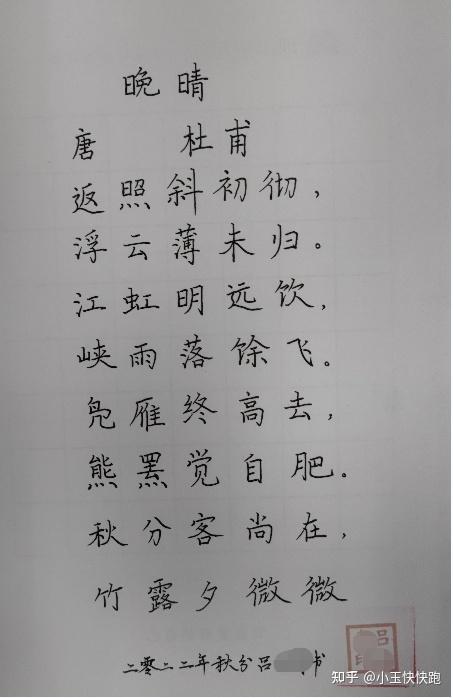 晚晴
唐 杜甫
返照斜初彻，
浮云薄未归。
江虹明远饮，
峡雨落馀飞。
凫雁终高去，
熊罴觉自肥。
秋分客尚在，
竹露夕微微
二零二二年秋分吕 书
吕
知乎 @小玉快快跑